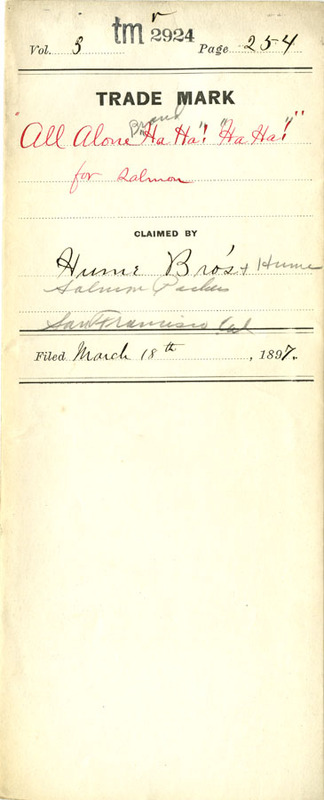 tm 2924
Vol. 3 Page 254
TRADE MARK
Brand
"All Alone "Ha Ha"! "Ha Ha!""
for Salmon
CLAIMED BY
Hume Bro's + Hume
Salmon Packers
San Francisco Cal
Filed March 18th, 1897.